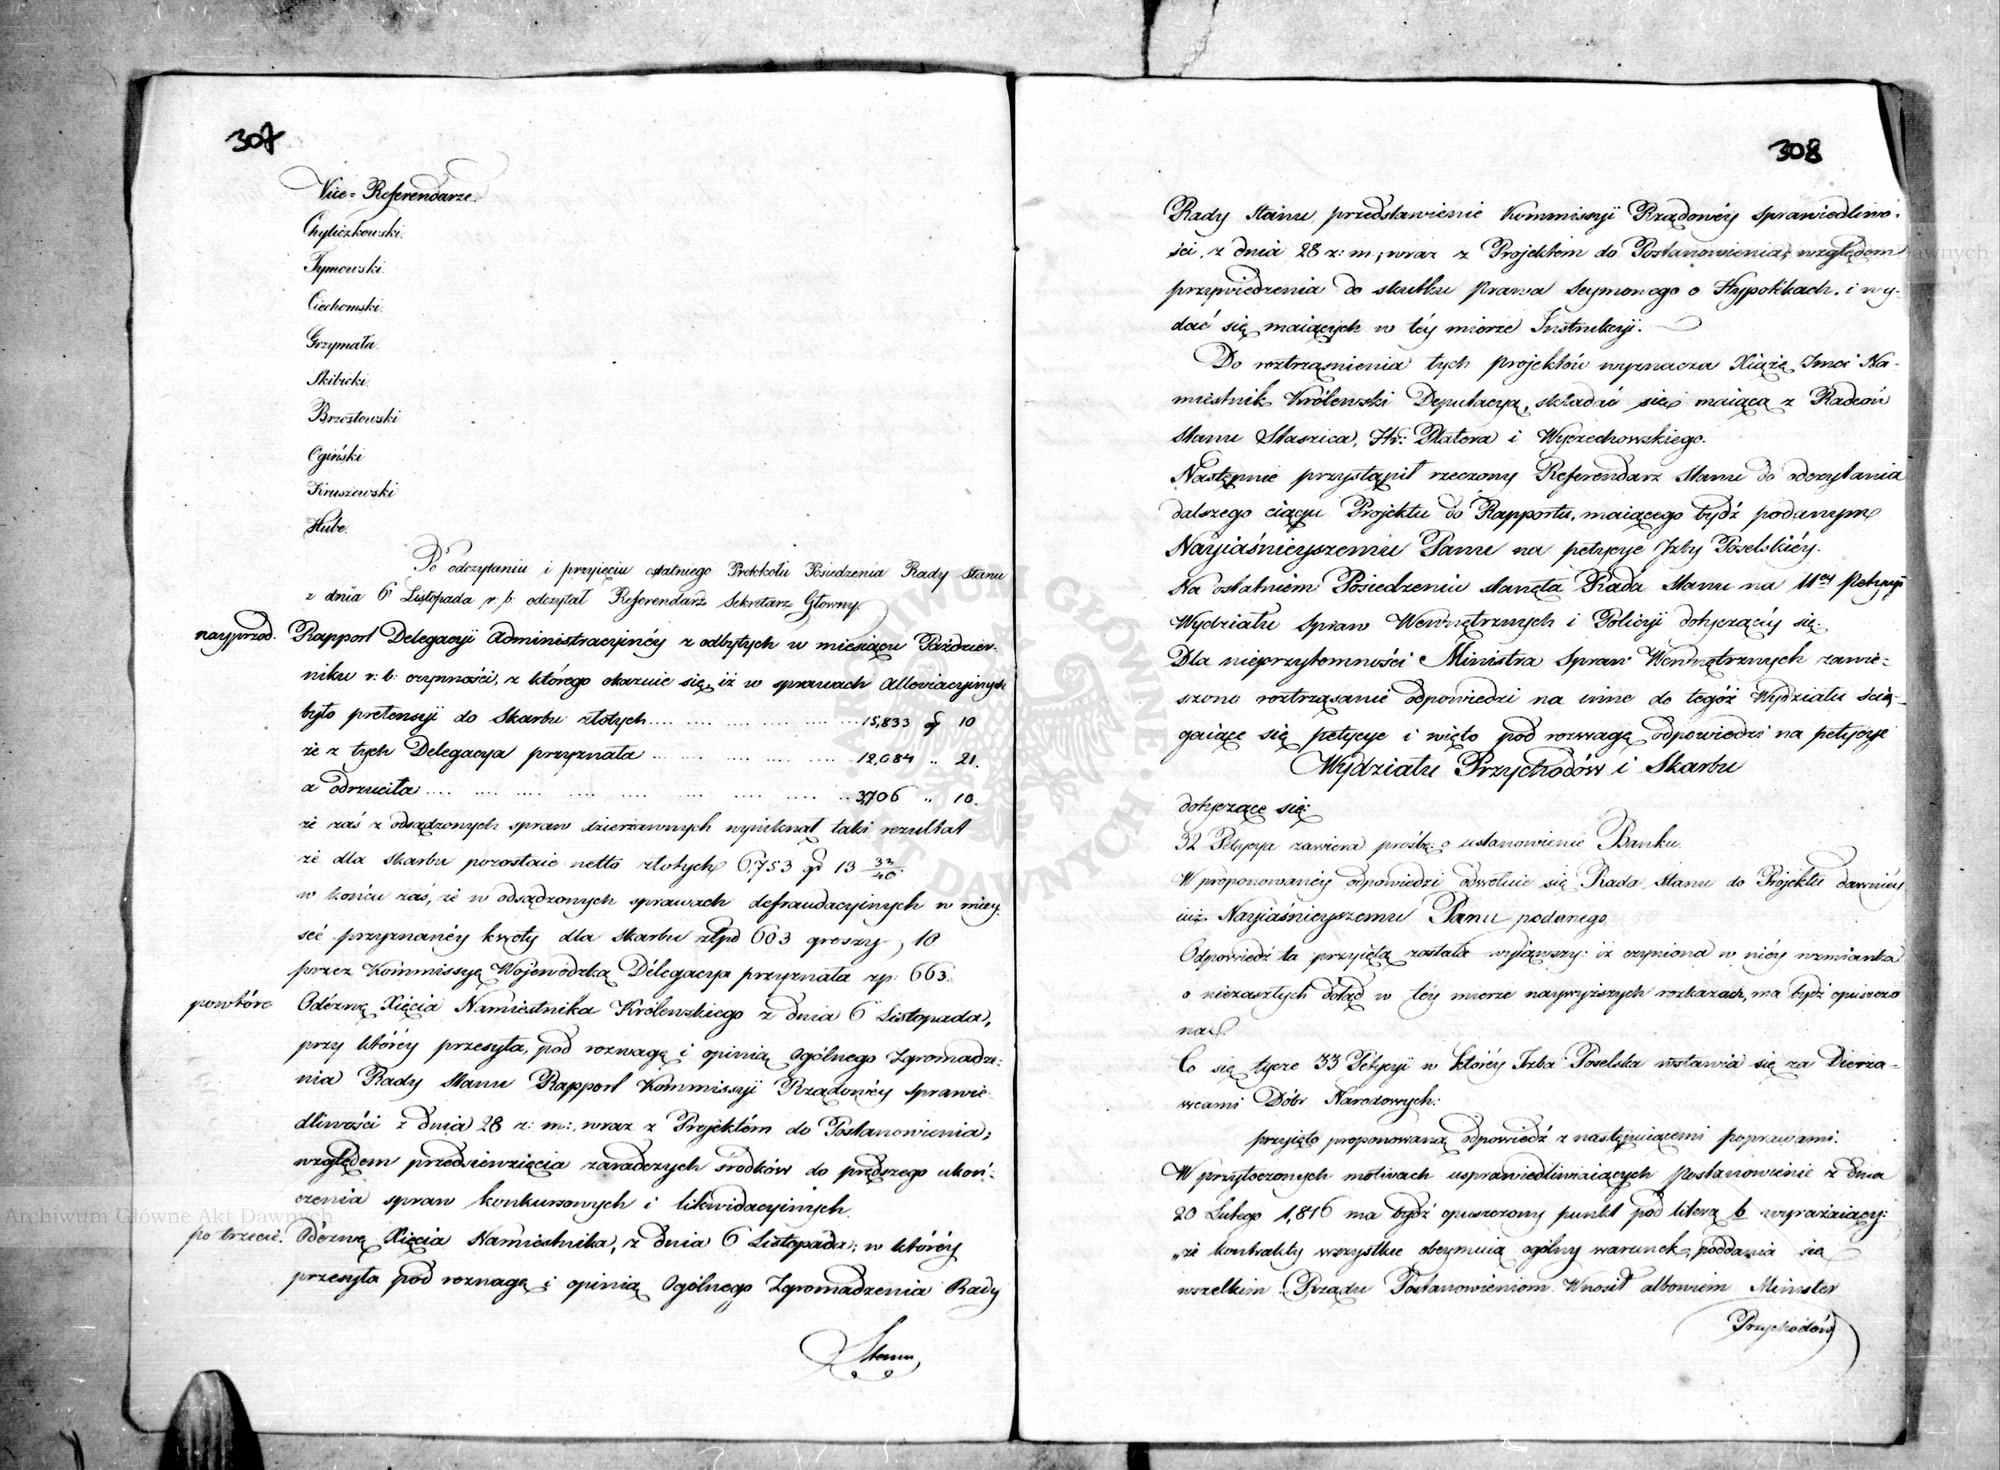 307
Vice-Referendarze.
Chyliczkowski.
Tymowski.
Ciechomski.
Grzymała.
Skibicki.
Brzostowski
Ogiński
Kruszewski
Hube.
Po odczytaniu i przyięciu ostatniego Protokołu Posiedzenia Rady Stanu
z dnia 6 Listopada r. b. odczytał Referendarz Sekretarz Głowny.
nayprzod. Rapport Delegacyi Administracyinéy z odbytych w miesiącu Paździer-
niku r: b: czynności, z którego okazuie się, iż w sprawach Alleviacyinych
było pretensyi do Skarbu złotych .... 15,833 gr 10
że z tych Delegacya przyznała .... 12,084 „ 21.
a odrzuciła .... 3,706 „ 10.
że zaś z osądzonych spraw dzierżawnych wyniknął taki rezultat
że dla Skarbu pozostaie netto złotych 6,753 gr 13 33/40.
w końcu zaś, że w odsądzonych sprawach defraudacyinych w miey-
scé przyznanéy kwoty dla Skarbu złpo 603 groszy, 10
przez Kommissyą Wojewódzką Délegacya przyznała zp: 663.
powtóre Odézwę Xięcia Namiestnika Królewskiego z dnia 6 Listopada,
przy którey przesyła, pod rozwagę i opinią Ogólnego Zgromadze-
nia Rady Stanu Rapport Kommissyi Rządowéy Sprawie-
dliwości z dnia 28 z: m:, wraz z Projektém do Postanowienia;
względem przedsięwzięcia zaradczych środków do prędszego ukoń-
czenia spraw konkursowych i likwidacyinych.
po trzecie. Odézwę Xięcia Namiestnika, z dnia 6 Listopada, w któréy
przesyła pod rozwagę i opinią Ogólnego Zgromadzenia Rady
Stanu,
308
Rady Stanu, przedstawienie Kommissyi Rządowéy Sprawiedliwo-
ści, z dnia 28 z: m:, wraz z Projektem do Postanowienia, względem
przywiedzenia do skutku prawa Seymowego o Hypotékach, i wy-
dać się maiących w téy mierze Instrukcyi.
Do roztrząśnienia tych projektów wyznacza Xiążę Imci Na-
miestnik Królewski Deputacyą, składać się maiącą z Radców
Stanu Staszica, Hr: Platera i Wyczechowskiego.
Następnie przystąpił rzeczony Referendarz Stanu do odczytania
dalszego ciągu Projektu do Rapportu, maiącego bydź podanym
Nayiaśnieyszemu Panu na petycye Izby Poselskiéy.
Na ostatniém Posiedzeniu stanęła Rada Stanu na 11ey Petycyi
Wydziału Spraw Wewnętrznych i Policyi dotyczącéy się.
Dla nieprzytomności Ministra Spraw Wewnętrznych zawie-
szono roztrząsanié odpowiedzi na inne do tegóż Wydziału ścią-
gaiące się petycye i wzięto pod rozwagę odpowiedzi na petycye
Wydziału Przychodów i Skarbu
dotyczące się:
32 Petycya zawiera prośbę o ustanowienie Banku.
W proponowanéy odpowiedzi odwołuie się Rada Stanu do Projektu dawniéy
iuż Nayiaśnieyszemu Panu podanego.
Odpowiedź ta przyiętą została wyiąwszy: iż czyniona w niéy wzmianka
o niezaszłych dotąd w téy mierze naywyższych rozkazach, ma bydź opuszczo
na.
Co się tycze 33 Pétycyi w któréy Izba Poselska wstawia się za Dzierża-
wcami Dóbr Narodowych:
przyięto proponowaną odpowiedź z następuiącemi poprawami.
W przytoczonych motivach usprawiedliwiaiących postanowienie z dnia
20 Lutego 1,816 ma bydź opuszczony punkt pod literą b wyrażaiący:
„że kontrakty wszystkie obeymuią ogólny warunek, poddania się
wszelkim Rządu Postanowieniom. Wnosił albowiem Minister
Przychodów
Archiwum Główne Akt Dawnych